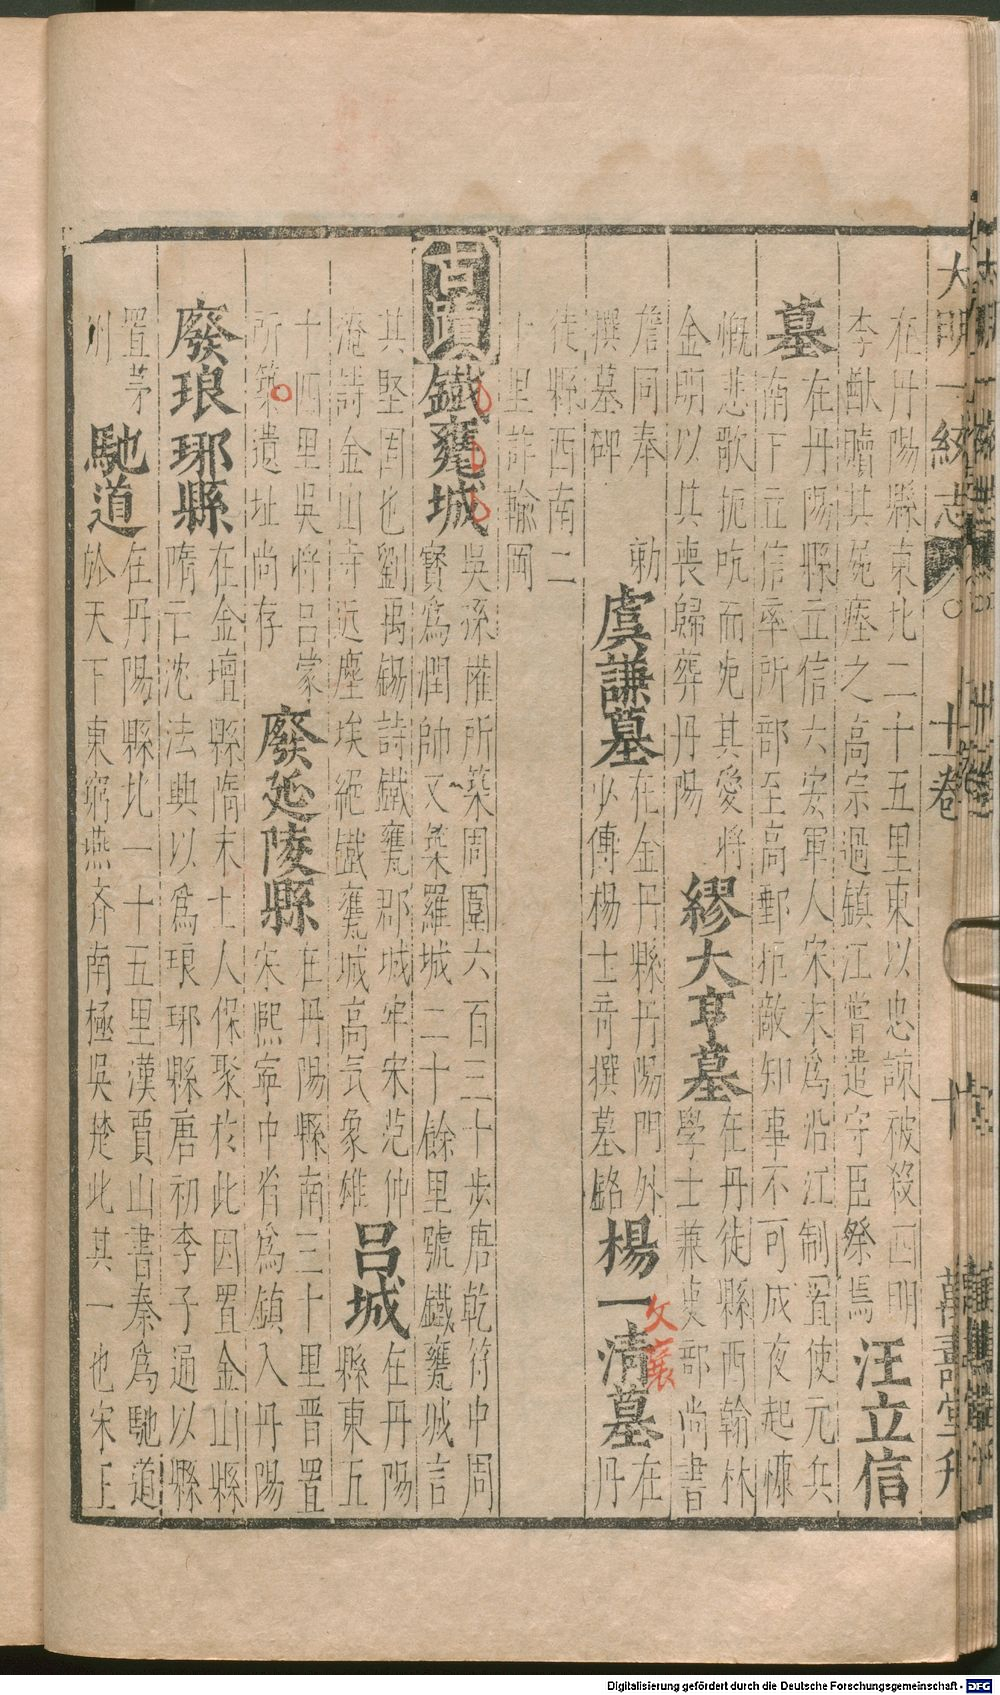 大明一統志 十一卷 十 萬壽堂刋
在丹陽縣東北二十五里東以忠諫被殺四明
李猷贖其屍瘞之高宗過鎮江嘗遣守臣祭焉 汪立信
墓 在丹陽縣立信六安軍人宋末爲沿江制置使元兵
南下立信率所部至高郵拒敵知事不可成夜起慷
慨悲歌扼吭而死其愛將
金明以其喪歸葬丹陽 繆大亨墓 在丹徒縣西翰林
學士兼吏部尚書
詹同奉 勑
撰墓碑 虞謙墓 在金丹縣丹陽門外
少傅楊士奇撰墓銘 楊一清墓 在
丹
文襄
徒縣西南二
十里許輸岡
古蹟 鐵甕城 吳孫權所築周圍六百三十步唐乾符中周
寳爲潤帥又築羅城二十餘里號鐵甕城言
其堅固也劉禹錫詩鐵甕郡城牢宋范仲
淹詩金山寺近塵埃絕鐵甕城高氣象雄 呂城 在丹陽
縣東五
十四里吳將呂蒙
所築遺址尚存 廢延陵縣 在丹陽縣南三十里晋置
宋熈寧中省爲鎮入丹陽
廢琅琊縣 在金壇縣隋末土人保聚於此因置金山縣
隋亡沈法興以爲琅琊縣唐初李子通以縣
置茅
州 馳道 在丹陽縣北一十五里漢賈山書秦爲馳道
於天下東窮燕齊南極吳楚此其一也宋王
Digitalisierung gefördert durch die Deutsche Forschungsgemeinschaft - DFG